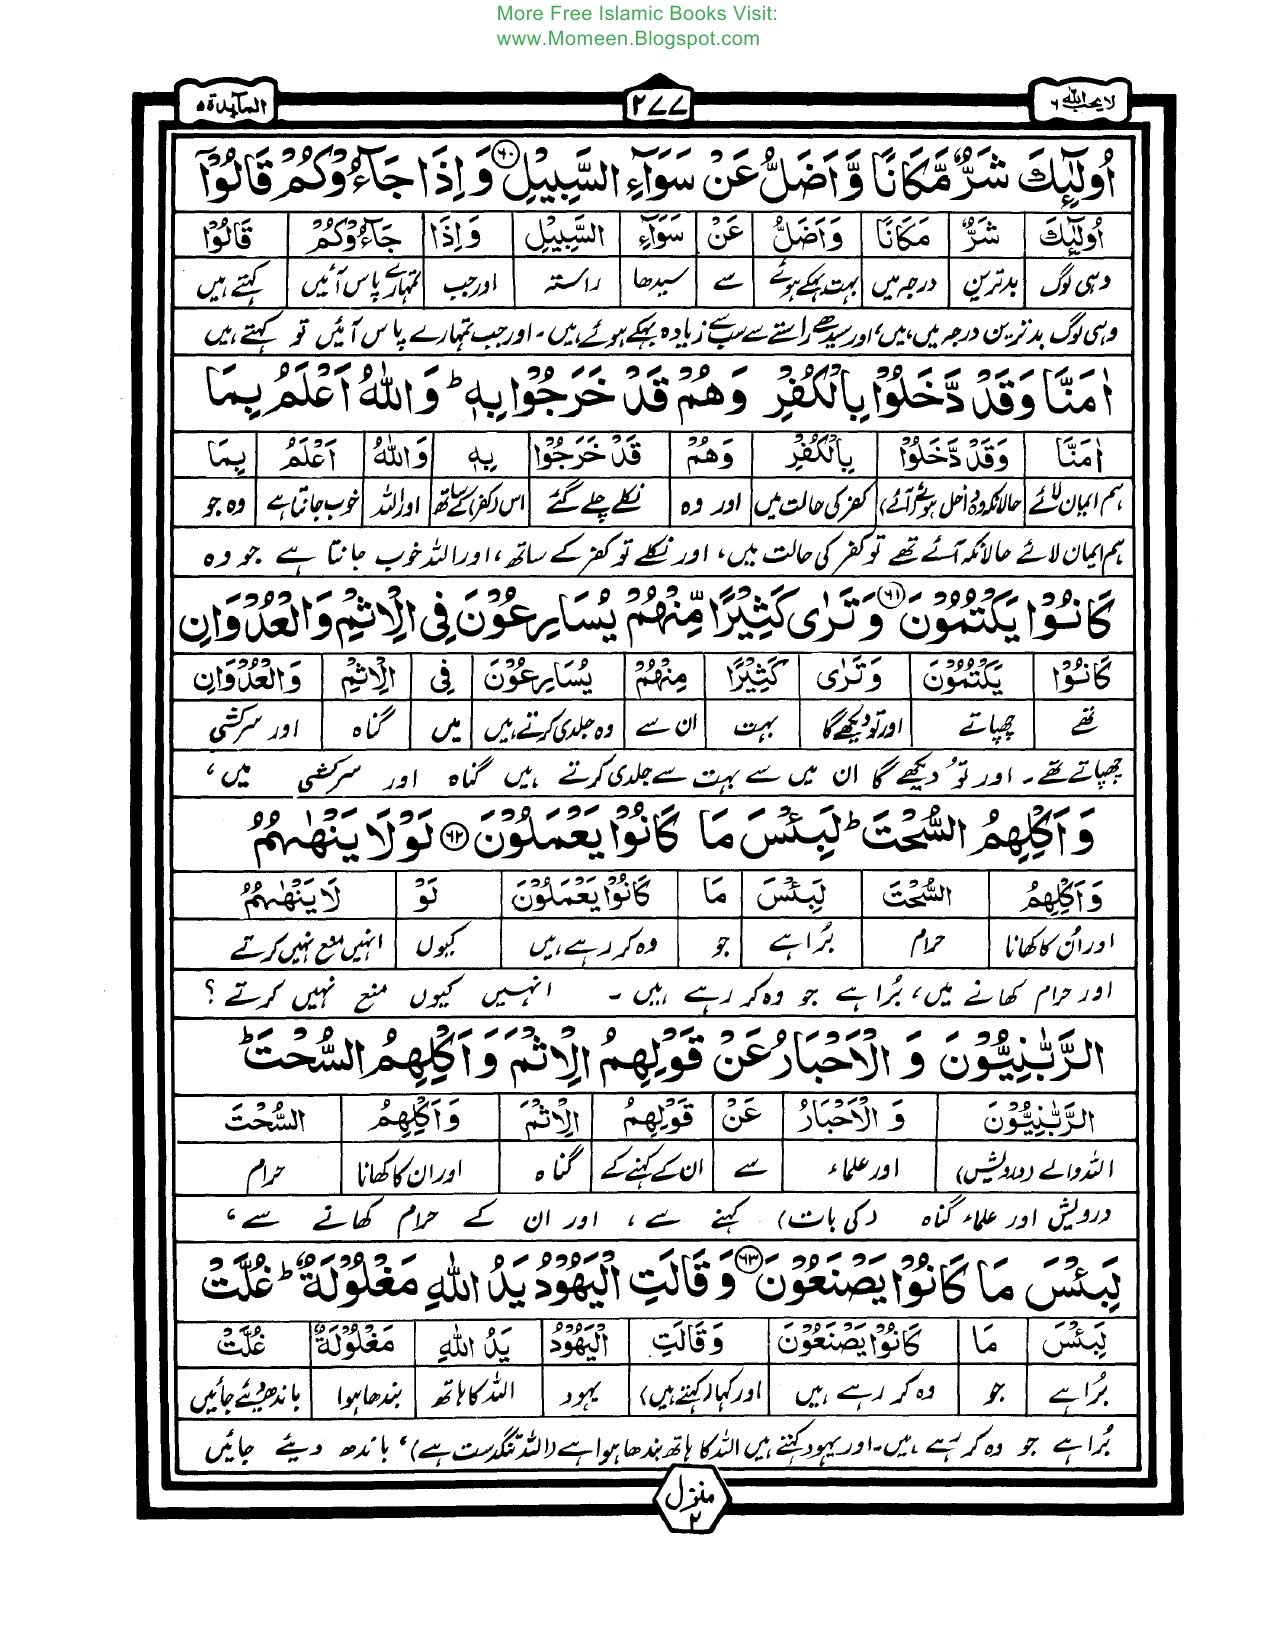 More Free Islamic Books Visit:
www.Momeen.Blogspot.com
لا يحب الله ۶
۲۷۷
المآئدة ۵
اُولٰٓئِكَ شَرٌّ مَّكَانًا وَّاَضَلُّ عَنْ سَوَآءِ السَّبِيْلِ ۶۰ وَاِذَا جَآءُوْكُمْ قَالُوْٓا
اُولٰٓئِكَ شَرٌّ مَكَانًا وَاَضَلُّ عَنْ سَوَآءِ السَّبِيْلِ وَاِذَا جَآءُوْكُمْ قَالُوْا
وہی لوگ بدترین درجہ میں بہت بہکے ہوئے سے سیدھا راستہ اور جب تمہارے پاس آئیں کہتے ہیں
وہی لوگ بدترین درجہ میں ہیں، اور سیدھے راستے سے سب سے زیادہ بہکے ہوئے ہیں۔ اور جب تمہارے پاس آئیں تو کہتے ہیں
اٰمَنَّا وَقَدْ دَّخَلُوْا بِالْكُفْرِ وَهُمْ قَدْ خَرَجُوْا بِهٖ ؕ وَاللّٰهُ اَعْلَمُ بِمَا
اٰمَنَّا وَقَدْ دَّخَلُوْا بِالْكُفْرِ وَهُمْ قَدْ خَرَجُوْا بِهٖ وَاللّٰهُ اَعْلَمُ بِمَا
ہم ایمان لائے حالانکہ وہ داخل ہوئے (آئے) کفر کی حالت میں اور وہ نکلے چلے گئے اس (کفر) کے ساتھ اور اللہ خوب جانتا ہے وہ جو
ہم ایمان لائے حالانکہ آئے تھے تو کفر کی حالت میں، اور نکلے تو کفر کے ساتھ، اور اللہ خوب جانتا ہے جو وہ
كَانُوْا يَكْتُمُوْنَ ۶۱ وَتَرٰى كَثِيْرًا مِّنْهُمْ يُسَارِعُوْنَ فِى الْاِثْمِ وَالْعُدْوَانِ
كَانُوْا يَكْتُمُوْنَ وَتَرٰى كَثِيْرًا مِنْهُمْ يُسَارِعُوْنَ فِى الْاِثْمِ وَالْعُدْوَانِ
تھے چھپاتے اور تو دیکھے گا بہت ان سے وہ جلدی کرتے ہیں میں گناہ اور سرکشی
چھپاتے تھے۔ اور تُو دیکھے گا ان میں سے بہت سے جلدی کرتے ہیں گناہ اور سرکشی میں،
وَاَكْلِهِمُ السُّحْتَ ؕ لَبِئْسَ مَا كَانُوْا يَعْمَلُوْنَ ۶۲ لَوْلَا يَنْهٰىهُمُ
وَاَكْلِهِمُ السُّحْتَ لَبِئْسَ مَا كَانُوْا يَعْمَلُوْنَ لَوْ لَا يَنْهٰىهُمُ
اور اُن کا کھانا حرام بُرا ہے جو وہ کر رہے ہیں کیوں انہیں منع نہیں کرتے
اور حرام کھانے میں، بُرا ہے جو وہ کر رہے ہیں۔ انہیں کیوں منع نہیں کرتے؟
الرَّبّٰنِيُّوْنَ وَ الْاَحْبَارُ عَنْ قَوْلِهِمُ الْاِثْمَ وَاَكْلِهِمُ السُّحْتَ ؕ
الرَّبّٰنِيُّوْنَ وَ الْاَحْبَارُ عَنْ قَوْلِهِمُ الْاِثْمَ وَاَكْلِهِمُ السُّحْتَ
اللہ والے (درویش) اور علماء سے ان کے کہنے کے گناہ اور ان کا کھانا حرام
درویش اور علماء گناہ (کی بات) کہنے سے، اور ان کے حرام کھانے سے،
لَبِئْسَ مَا كَانُوْا يَصْنَعُوْنَ ۶۳ وَقَالَتِ الْيَهُوْدُ يَدُ اللّٰهِ مَغْلُوْلَةٌ ؕ غُلَّتْ
لَبِئْسَ مَا كَانُوْا يَصْنَعُوْنَ وَقَالَتِ الْيَهُوْدُ يَدُ اللّٰهِ مَغْلُوْلَةٌ غُلَّتْ
بُرا ہے جو وہ کر رہے ہیں اور کہا (کہتے ہیں) یہود اللہ کا ہاتھ بندھا ہوا باندھ دیئے جائیں
بُرا ہے جو وہ کر رہے ہیں۔ اور یہود کہتے ہیں اللہ کا ہاتھ بندھا ہوا ہے (اللہ تنگدست ہے)، باندھ دیئے جائیں
منزل ۲